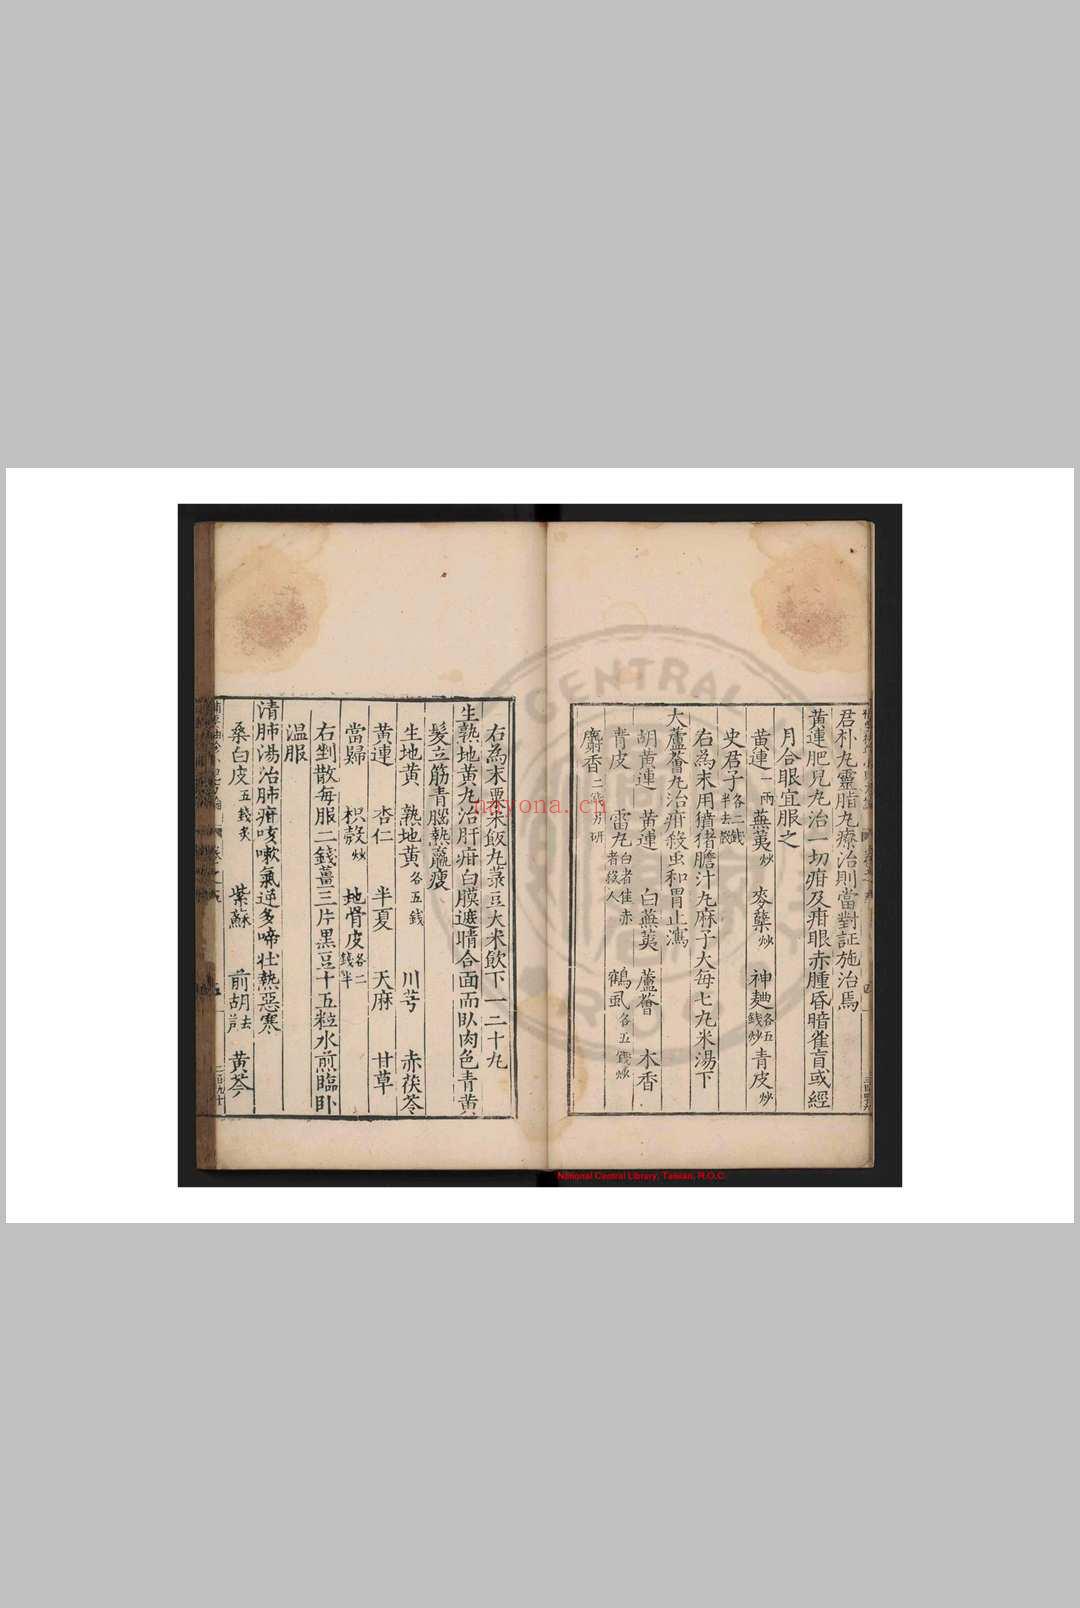 君朴丸靈脂丸療治則當對証施治焉
黄連肥兒丸治一切疳及疳眼赤腫昏暗雀盲或經
月合眼宜服之
黄連一兩 蕪荑炒 麥蘖炒 神麯各五錢炒 青皮炒
史君子各二錢半去殼
右為末用獖猪膽汁丸麻子大每七丸米湯下
大蘆薈丸治疳殺虫和胃止瀉
胡黄連 黄連 白蕪荑 蘆薈 木香
青皮 雷丸白者佳赤者殺人 鶴虱各五錢炒
麝香二錢別研
右為末粟米飯丸菉豆大米飲下一二十丸
生熟地黄丸治肝疳白膜遮睛合面而臥肉色青黄
髮立筋青腦熱羸瘦
生地黄 熟地黄各五錢 川芎 赤茯苓
黄連 杏仁 半夏 天麻 甘草
當歸 枳殼炒 地骨皮各二錢半
右剉散每服二錢薑三片黒豆十五粒水煎臨卧
温服
清肺湯治肺疳咳嗽氣逆多啼壮熱惡寒
桑白皮五錢炙 紫蘇 前胡去蘆 黄芩
CENTRAL
R.O.C
nayona.cn
National Central Library, Taiwan, R.O.C